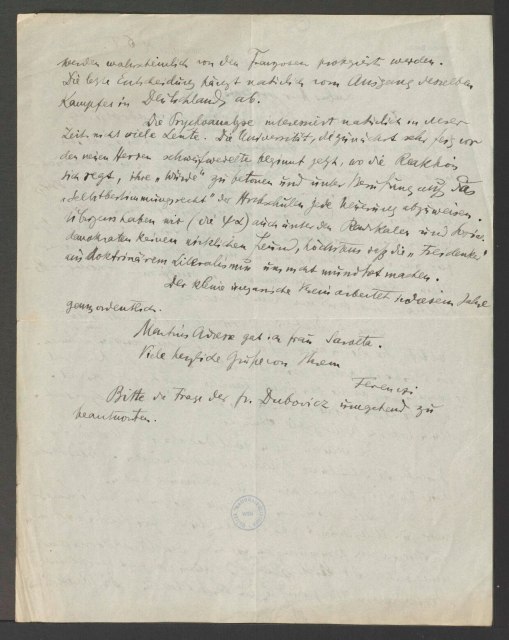 werden wahrscheinlich von den Franzosen protegiert werden.
Die letzte Entscheidung hängt natürlich vom Ausgang desselben
Kampfes in Deutschland ab.
Die Psychoanalyse interessiert natürlich in dieser
Zeit nicht viele Leute. Die Universität, die zunächst sehr vor
den neuen Herren schweifwedelte beginnt jetzt, wo die Reaktion
sich regt, ihre „Würde“ zu betonen und unter Berufung auf das
„Selbstbestimmungsrecht“ der Hochschulen jede Neuerung abzuweisen.
Übrigens haben wir (die ΨΑ) auch unter den Radikalen und Sozial-
demokraten keinen wirklichen Freund, höchstens daß die „Freidenker“
aus doktrinärem Liberalismus uns nicht mundtot machen.
Der kleine ungarische Verein arbeitet in diesem Jahre
ganz ordentlich.
Adresse Frau Sarolta.
Viele herzliche Grüße von Ihrem
Ferenczi
Bitte die Frage der Fr. Dubovicz umgehend zu
beantworten.